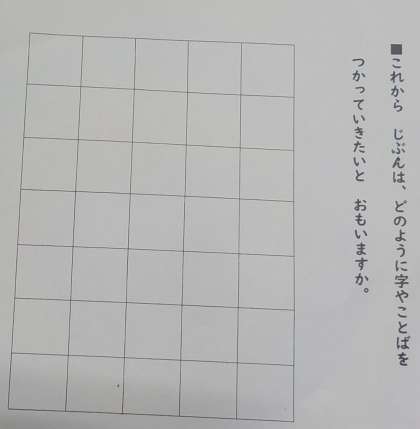 ■これから　じぶんは、どのように字やことばを
つかっていきたいと　おもいますか。